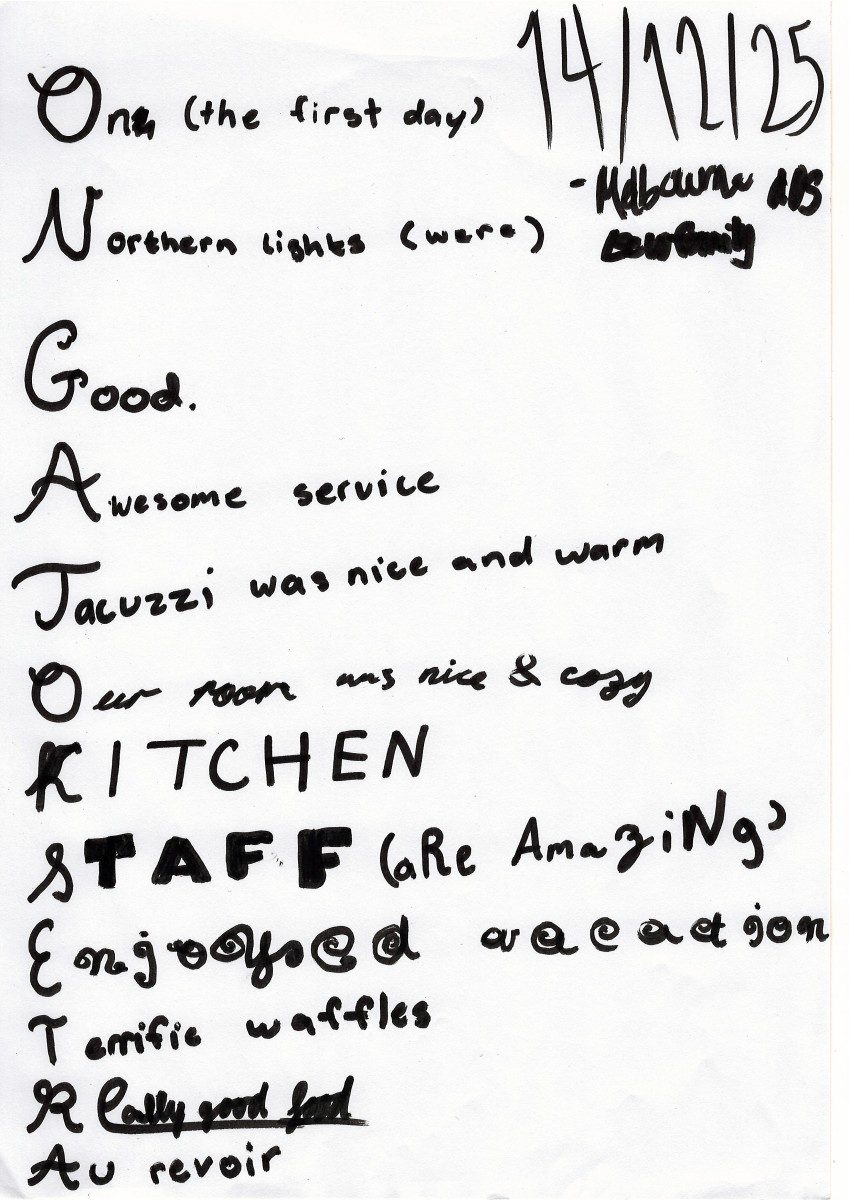 14/12/25
One (the first day)
- Melbourne
Northern lights (were)
family
Good.
Awesome service
Jacuzzi was nice and warm
Our room was nice & cozy
KITCHEN
STAFF (aRe AmaziNg)
Enjoyed vacation
Terrific waffles
Really good food
Au revoir